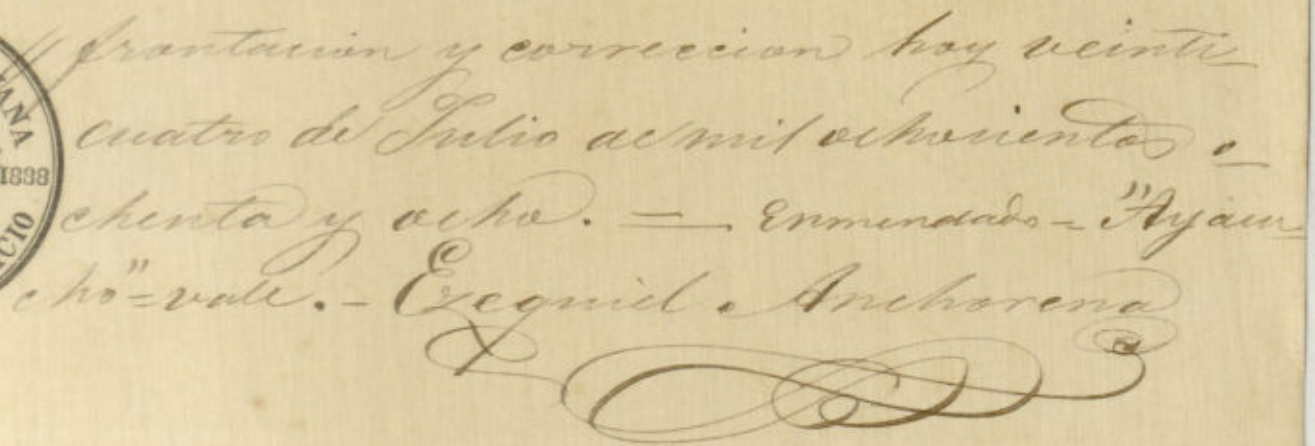 frontacion y correccion hoy veinti
cuatro de Julio de mil ochocientos o
chenta y ocho. — Enmendado = "Ayacu
cho" = vale. - Ezequiel . Anchorena
ANA
1888
CIO